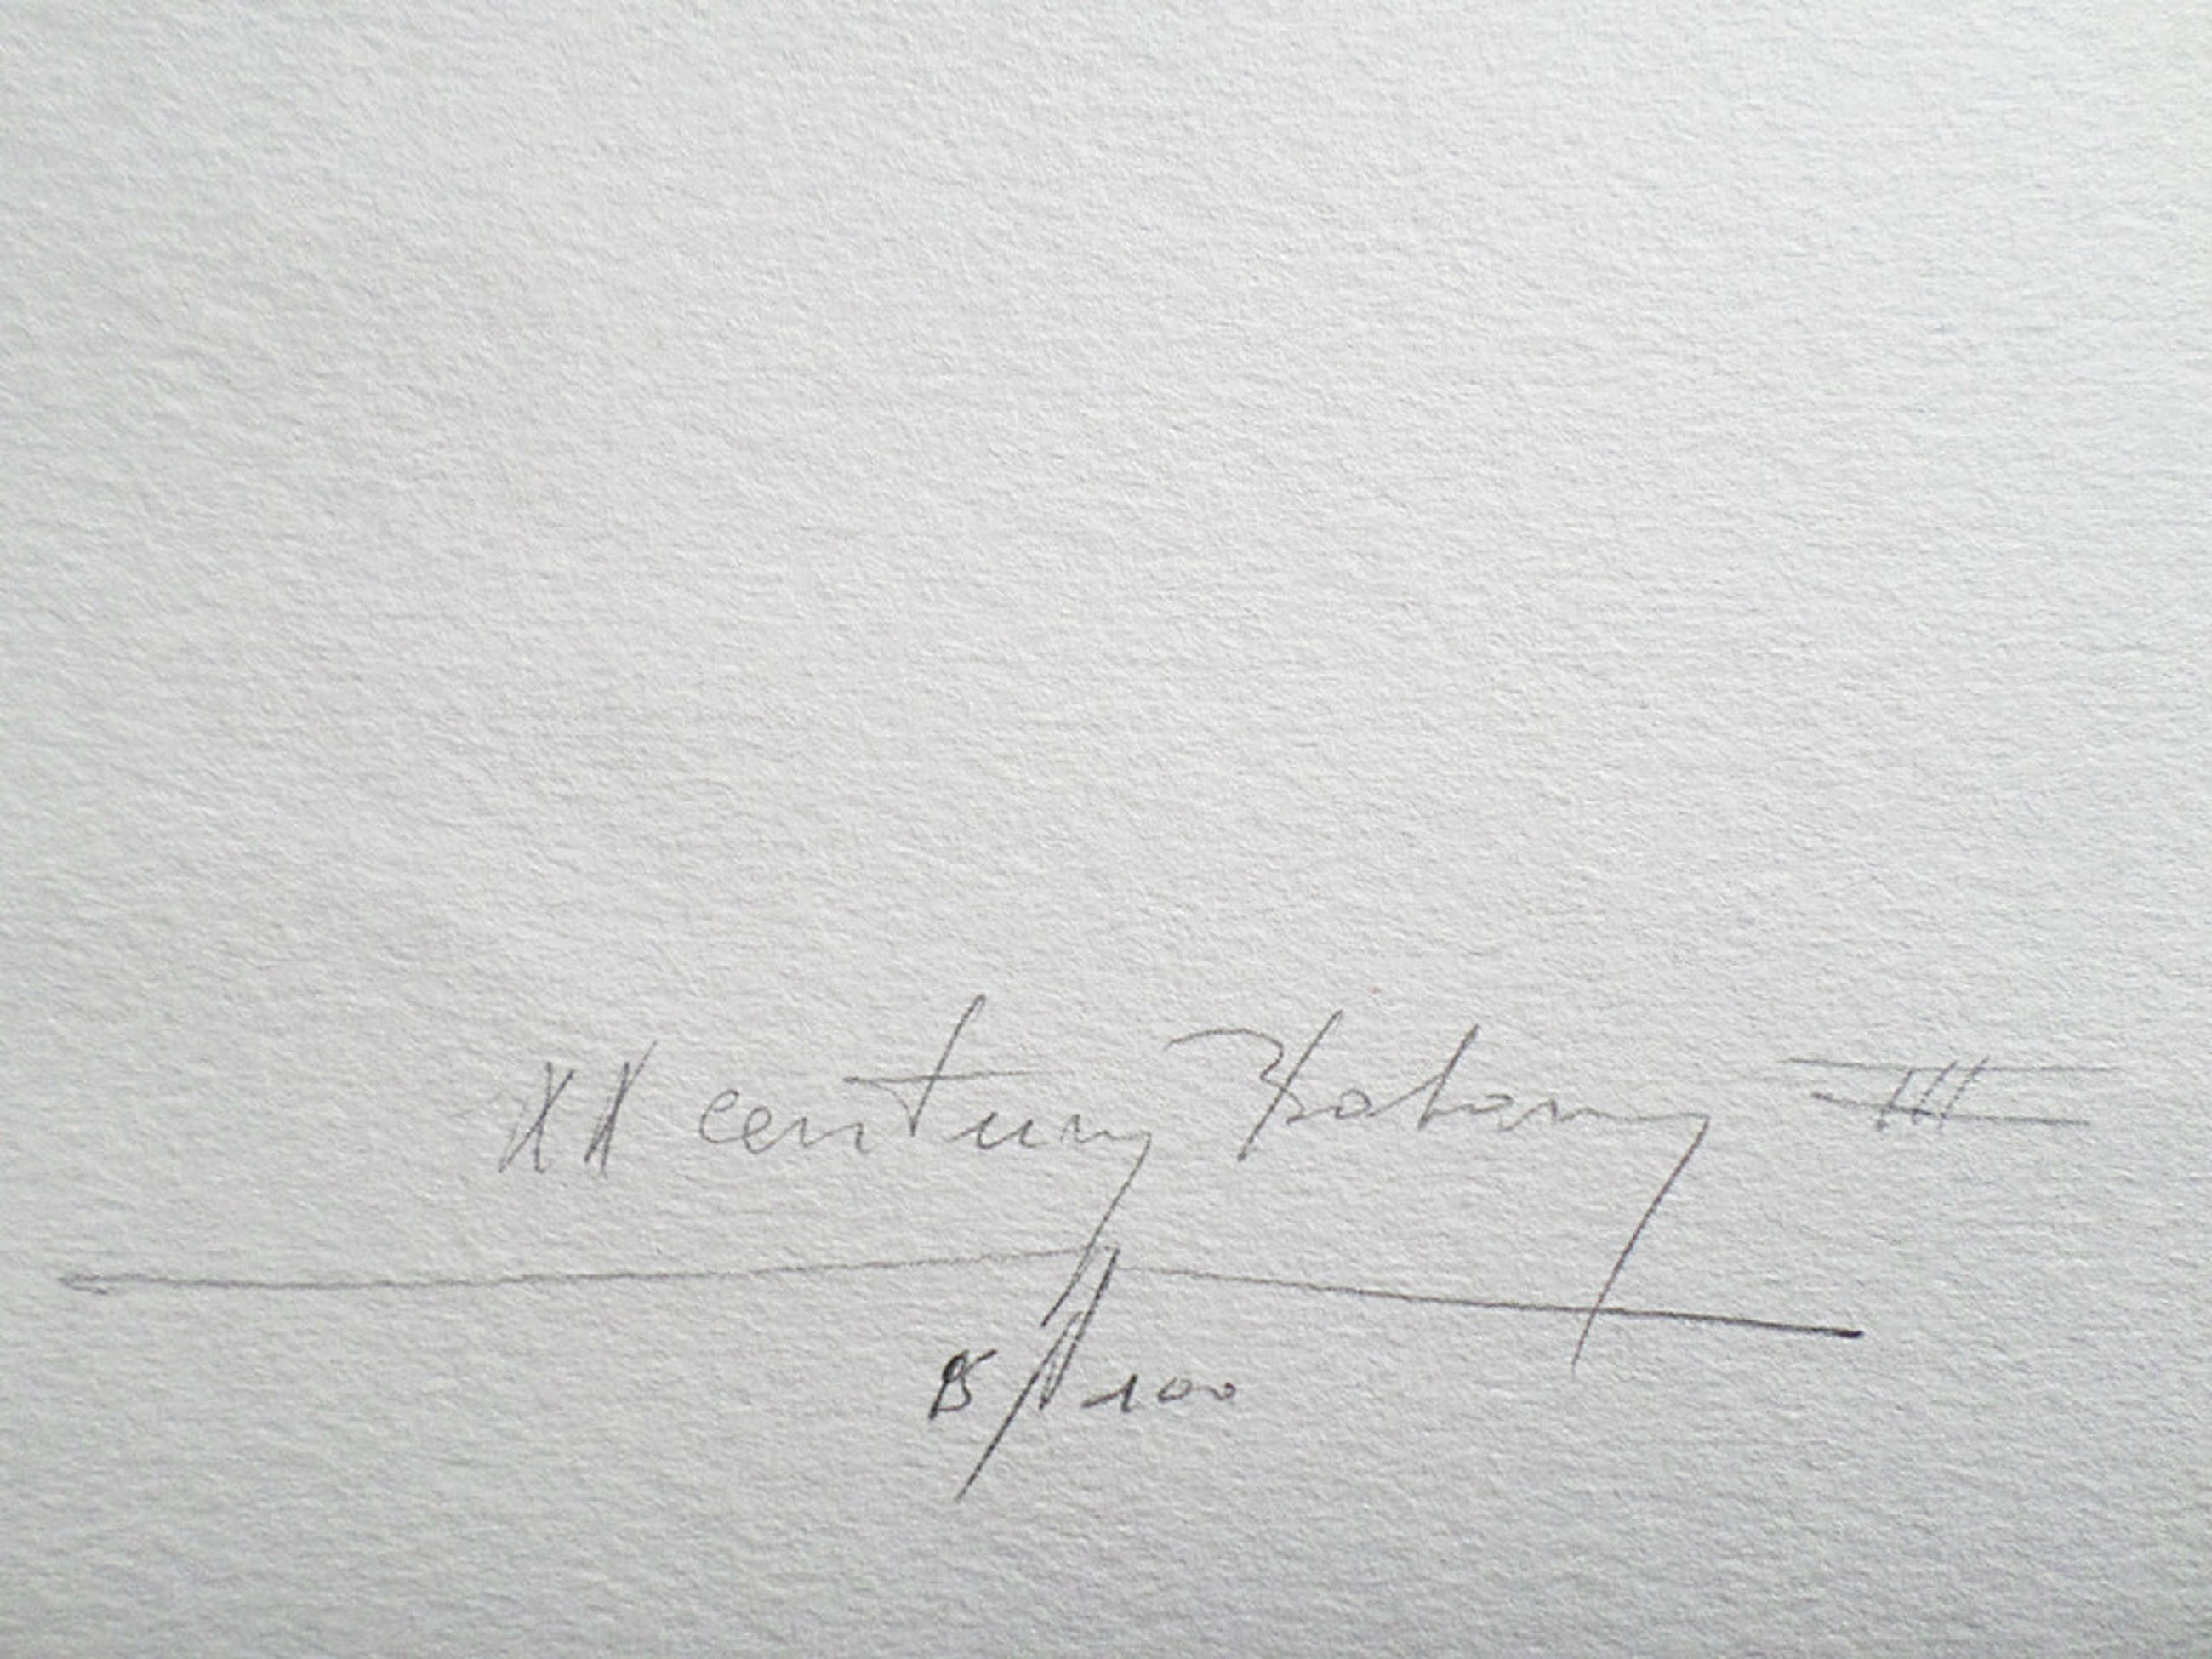 XX century Botany III
/ 100